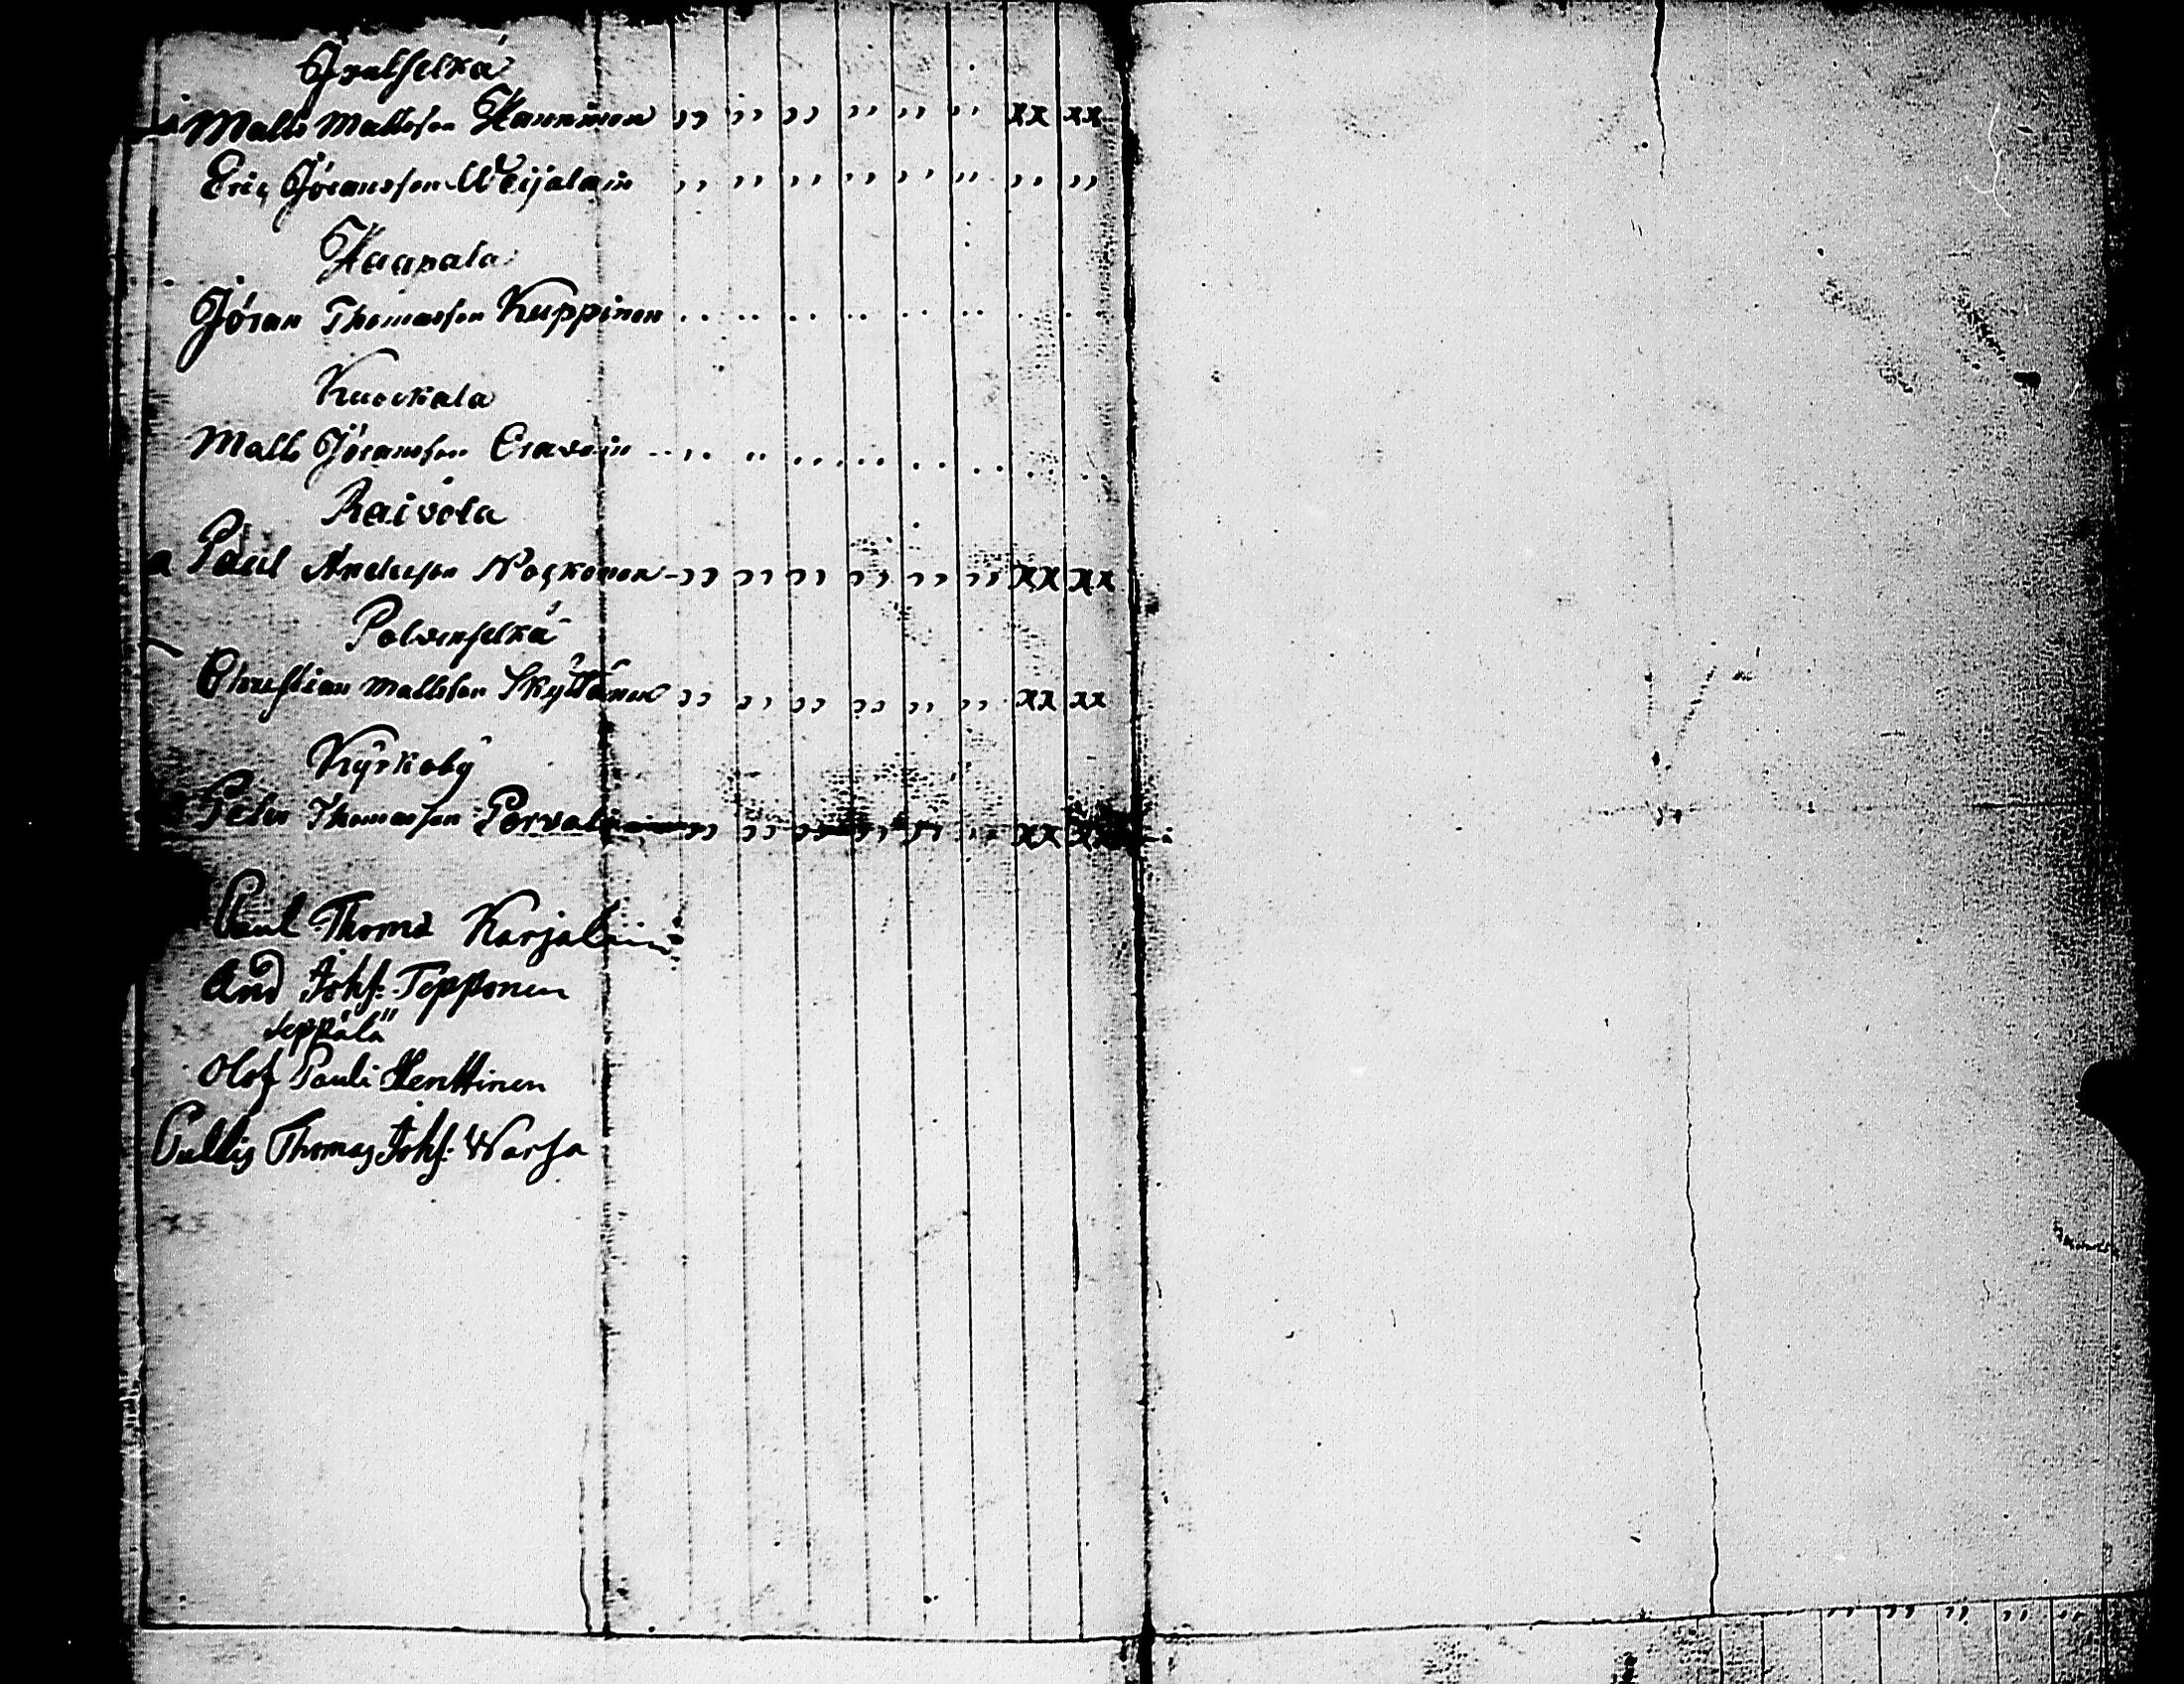 Jvalselkä
Matts Mattsson Hanninen " " " " " " xx xx
Eric Jöransson Weijalain " " " " " " " "
Haapala
Jöran Thomasson Kuppinen
Kuockala
Matts Jöransson
Raivola
Paul Andersson Noskonen " " " " " " xx xx
Polvenselkä
Christian Mattsson Skyttänen " " " " " " xx xx
Kyrkoby
Peter Thomasson " " " " " " xx xx
Paul Thoms Karjalain
And Johs: Topponen
Seppälä
Olof Pauli Henttinen
Thomas Johs: